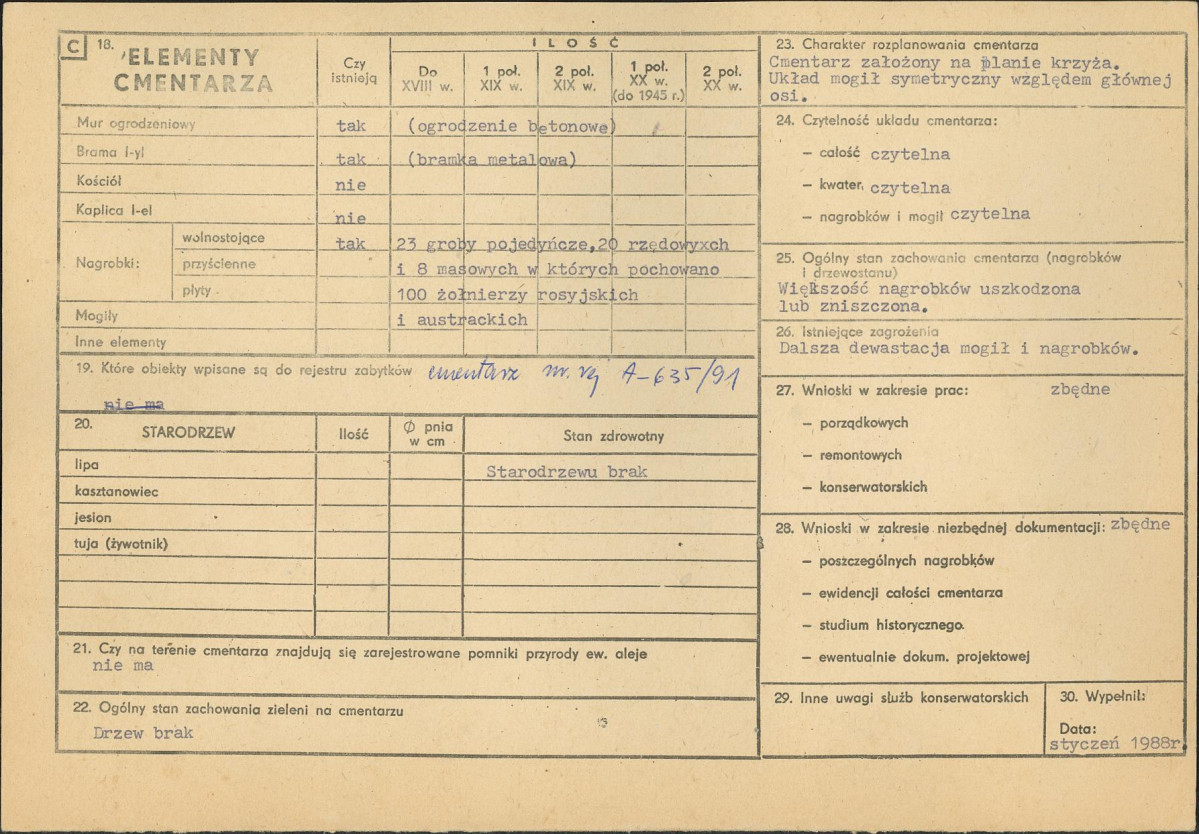 C 18. ELEMENTY
CMENTARZA
Czy
istnieją
ILOŚĆ
Do
XVIII w.
1 poł.
XIX w.
2 poł.
XIX w.
1 poł.
XX w.
(do 1945 r.)
2 poł.
XX w.
Mur ogrodzeniowy tak (ogrodzenie betonowe)
Brama I-yl tak (bramka metalowa)
Kościół nie
Kaplica I-el nie
Nagrobki:
wolnostojące tak 23 groby pojedyńcze,20 rzędowyxch
przyścienne i 8 masowych w których pochowano
płyty 100 żołnierzy rosyjskich
Mogiły i austrackich
Inne elementy
19. Które obiekty wpisane są do rejestru zabytków cmentarz nr. rej A-635/91
nie ma
20. STARODRZEW
Ilość
Ø pnia
w cm
Stan zdrowotny
lipa Starodrzewu brak
kasztanowiec
jesion
tuja (żywotnik)
21. Czy na terenie cmentarza znajdują się zarejestrowane pomniki przyrody ew. aleje
nie ma
22. Ogólny stan zachowania zieleni na cmentarzu
Drzew brak
23. Charakter rozplanowania cmentarza
Cmentarz założony na planie krzyża.
Układ mogił symetryczny względem głównej
osi.
24. Czytelność układu cmentarza:
— całość czytelna
— kwater, czytelna
— nagrobków i mogił czytelna
25. Ogólny stan zachowania cmentarza (nagrobków
i drzewostanu)
Większość nagrobków uszkodzona
lub zniszczona.
26. Istniejące zagrożenia
Dalsza dewastacja mogił i nagrobków.
27. Wnioski w zakresie prac: zbędne
— porządkowych
— remontowych
— konserwatorskich
28. Wnioski w zakresie niezbędnej dokumentacji: zbędne
— poszczególnych nagrobków
— ewidencji całości cmentarza
— studium historycznego.
— ewentualnie dokum. projektowej
29. Inne uwagi służb konserwatorskich
30. Wypełnił:
Data:
styczeń 1988r.